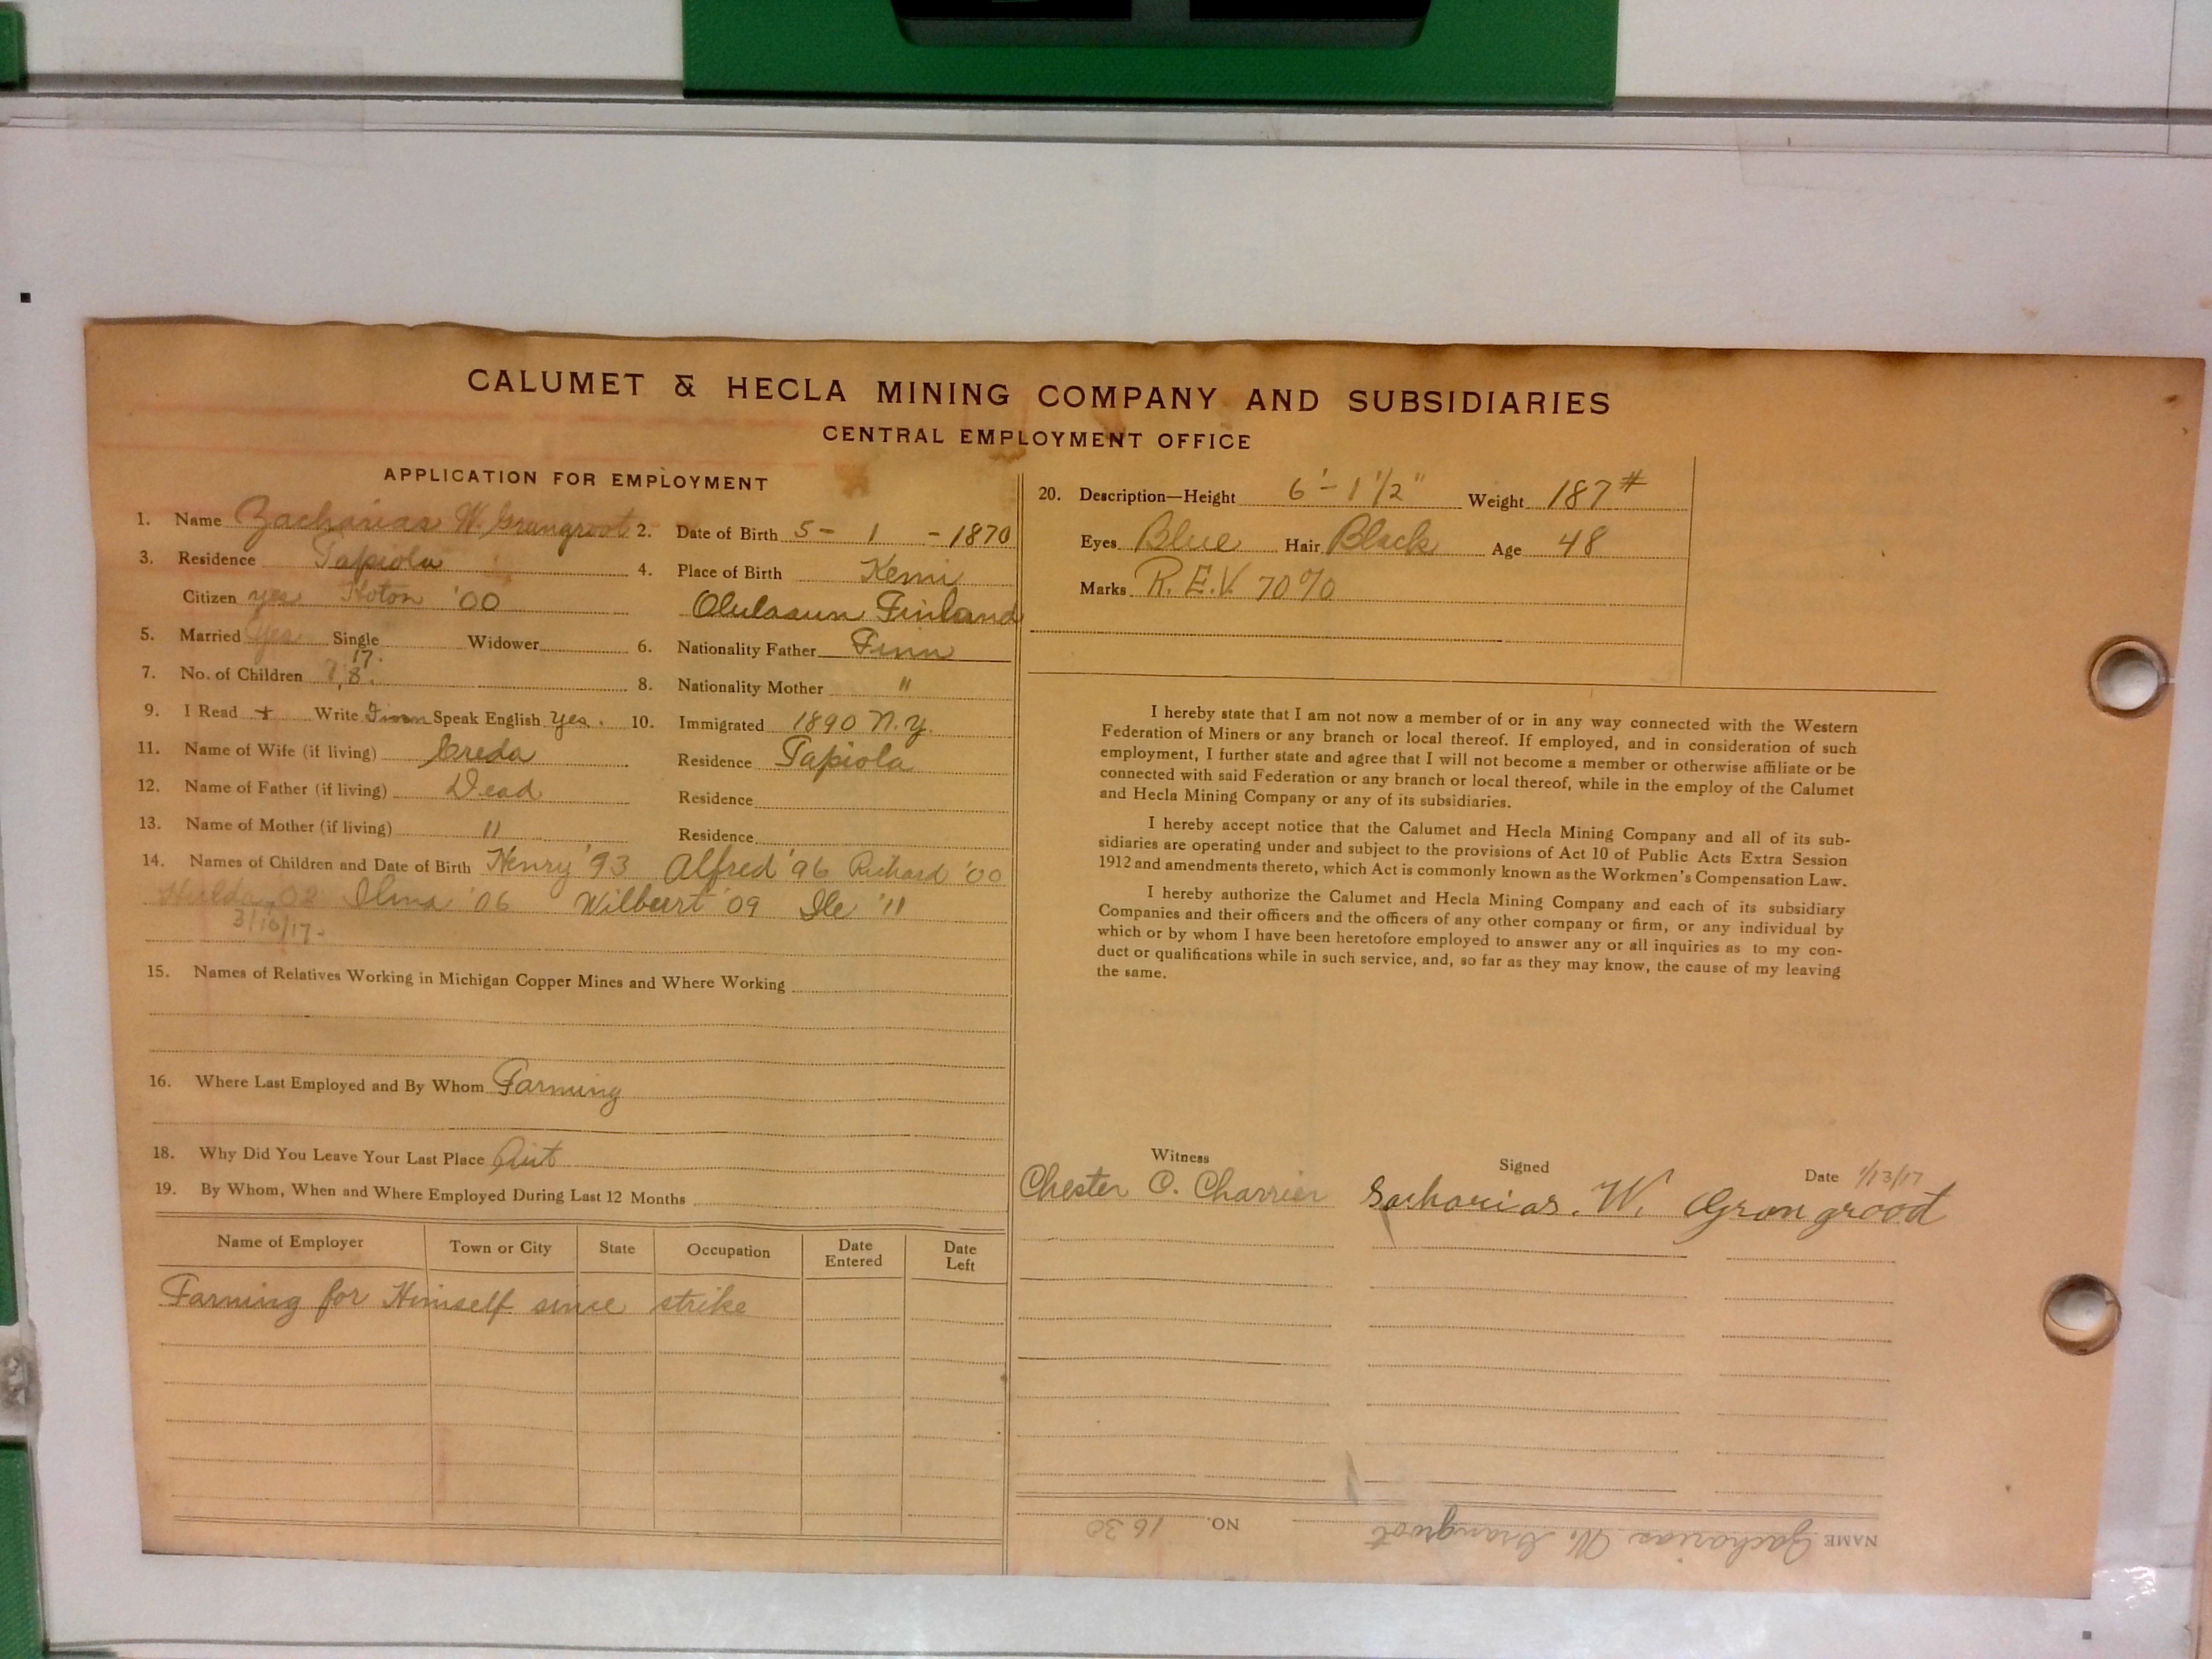 CALUMET & HECLA MINING COMPANY AND SUBSIDIARIES
CENTRAL EMPLOYMENT OFFICE
APPLICATION FOR EMPLOYMENT
1. Name Zacharias W. Grangroot 2. Date of Birth 5 - 1 - 1870
3. Residence Tapiola 4. Place of Birth Kemi
Citizen yes Hoton '00 Olulaaun Finland
5. Married Yes Single Widower 6. Nationality Father Finn
17.
7. No. of Children 7, 8. 8. Nationality Mother "
9. I Read + Write Finn Speak English Yes. 10. Immigrated 1890 N.Y.
11. Name of Wife (if living) Greda Residence Tapiola
12. Name of Father (if living) Dead Residence
13. Name of Mother (if living) " Residence
14. Names of Children and Date of Birth Henry '93 Alfred '96 Richard '00
Hulda '02 Ilma '06 Wilbert '09 Ile '11
3/16/17-
15. Names of Relatives Working in Michigan Copper Mines and Where Working
16. Where Last Employed and By Whom Farming
18. Why Did You Leave Your Last Place Quit
19. By Whom, When and Where Employed During Last 12 Months
Name of Employer Town or City State Occupation Date Entered Date Left
Farming for Himself since strike
20. Description—Height 6'-1 1/2" Weight 187#
Eyes Blue Hair Black Age 48
Marks R.E.V. 70%
I hereby state that I am not now a member of or in any way connected with the Western
Federation of Miners or any branch or local thereof. If employed, and in consideration of such
employment, I further state and agree that I will not become a member or otherwise affiliate or be
connected with said Federation or any branch or local thereof, while in the employ of the Calumet
and Hecla Mining Company or any of its subsidiaries.
I hereby accept notice that the Calumet and Hecla Mining Company and all of its sub-
sidiaries are operating under and subject to the provisions of Act 10 of Public Acts Extra Session
1912 and amendments thereto, which Act is commonly known as the Workmen's Compensation Law.
I hereby authorize the Calumet and Hecla Mining Company and each of its subsidiary
Companies and their officers and the officers of any other company or firm, or any individual by
which or by whom I have been heretofore employed to answer any or all inquiries as to my con-
duct or qualifications while in such service, and, so far as they may know, the cause of my leaving
the same.
Witness Signed Date 1/13/17
Chester C. Charrier Sacharias. W. Grangroot
NAME Zacharias W. Grangroot NO. 1630